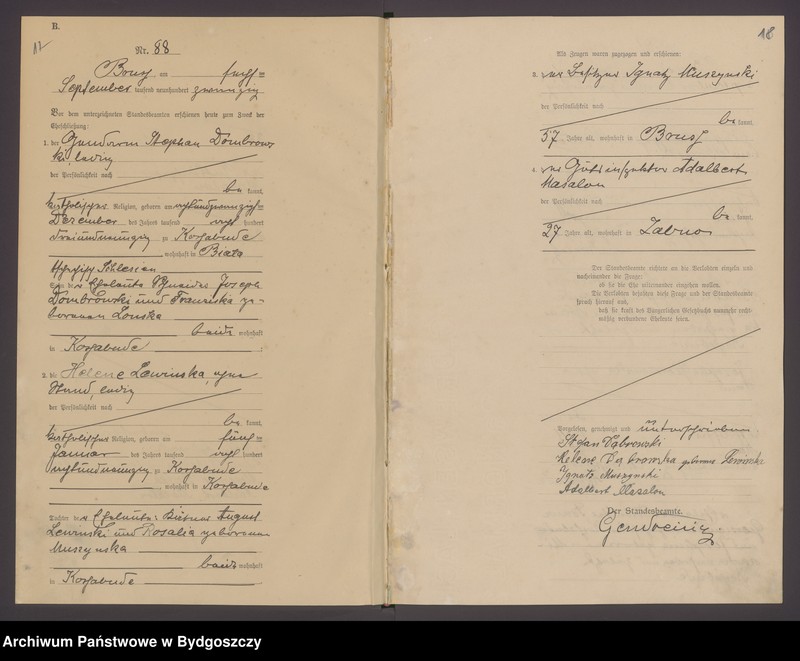 B.
Nr. 88
Brusy am
September tausend neunhundert zwanzig
Vor dem unterzeichneten Standesbeamten erschienen heute zum Zweck der
Eheschließung:
1. der Gendarm Stephan Dombrows
ki, ledig
der Persönlichkeit nach
be kannt,
katholischer Religion, geboren am achtundzwanzig=
Dezember des Jahres tausend acht hundert
dreiundneunzig zu Kossabude
wohnhaft in Biała
Schlesien
Eheleute Joseph
Dombrowski und Franziska ge-
borenen Lonska
beide wohnhaft
in Kossabude
2. die Helene Lewinska, ohne
Stand, ledig
der Persönlichkeit nach
be kannt,
katholischer Religion, geboren am fünf=
Januar des Jahres tausend acht hundert
achtundneunzig zu Kossabude
wohnhaft in Kossabude
Tochter der Eheleute: Besitzer August
Lewinski und Rosalia geborenen
Muszynska
beide wohnhaft
in Kossabude
18
Als Zeugen waren zugezogen und erschienen:
3. der Besitzer Ignatz Muszynski
der Persönlichkeit nach
be kannt,
57 Jahre alt, wohnhaft in Brusy
4. der Gutsinspektor Adalbert
Masalon
der Persönlichkeit nach
be kannt,
27 Jahre alt, wohnhaft in Zabno
Der Standesbeamte richtete an die Verlobten einzeln und
nacheinander die Frage:
ob sie die Ehe miteinander eingehen wollen.
Die Verlobten bejahten diese Frage und der Standesbeamte
sprach hierauf aus,
daß sie kraft des Bürgerlichen Gesetzbuchs nunmehr recht-
mäßig verbundene Eheleute seien.
Vorgelesen, genehmigt und unterschrieben.
Stefan Dąbrowski
Helene Dąbrowska geborene Lewinska
Ignatz Muszynski
Adalbert Masalon
Der Standesbeamte.
Archiwum Państwowe w Bydgoszczy